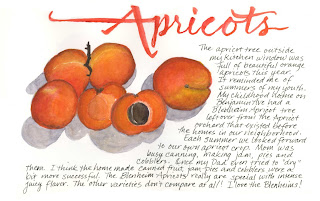 Apricots
The apricot tree outside
my kitchen window was
full of beautiful orange
apricots this year.
It reminded me of
summers of my youth.
My childhood home on
Benjamin Ave had a
Blenheim Apricot tree
leftover from the Apricot
orchard that existed before
the homes in our neighborhood.
Each summer we looked forward
to our own apricot crop. Mom was
busy canning, making jam, pies and
cobblers. One year Dad even tried to "dry"
them. I think the home made canned fruit, jam, pies and cobblers were a
bit more successful. The Blenheim Apricots really are special with intense
juicy flavor. The other varieties don't compare at all! I love the Blenheims!